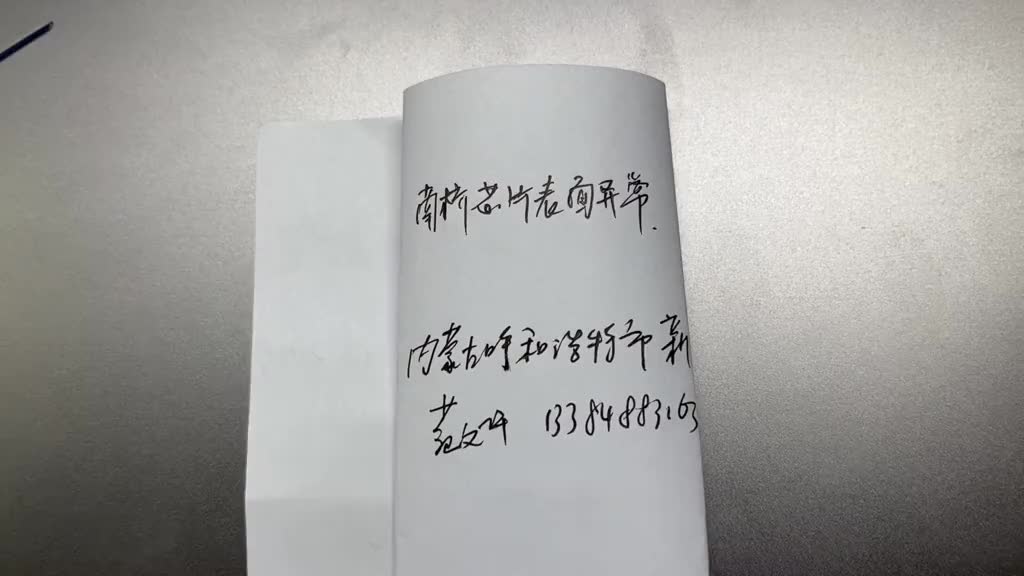 南桥芯片表面异常.
内蒙古呼和浩特市新
范文 13384883163